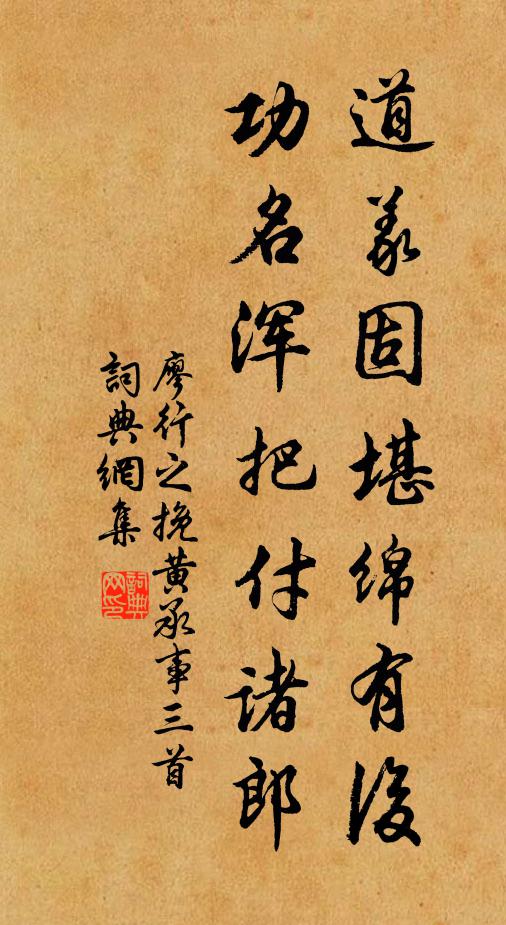 道義固堪綿有後
功名浑把付諸郎
廖行之挽黄承事三首
詞典網集
詞典網印